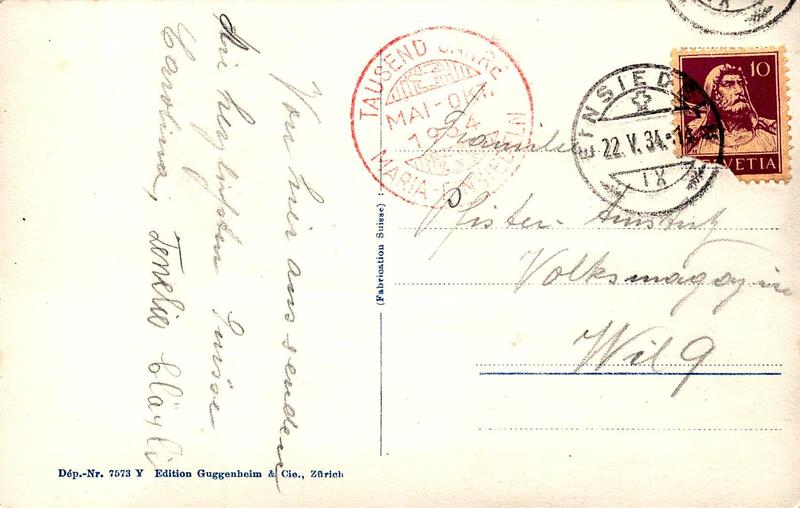 Von hier aus senden
die herzlichsten Grüsse
Carolina,
TAUSEND JAHRE
MAI-OKT.
1934
MARIA-EINSIEDELN
EINSIEDELN
22.V.34.
IX
10
HELVETIA
Familie
Pfister-Amstutz
Volksmagazin
Wil
(Fabrication Suisse)
Dép.-Nr. 7573 Y Edition Guggenheim & Cie., Zürich